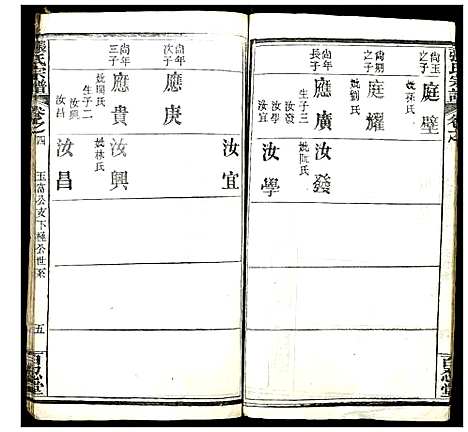 張氏宗譜 卷之
尚玉之子 庭壁 妣孫氏
尚朝之子 庭耀 妣劉氏
尚年長子 應廣 妣阮氏 生子三 汝發 汝學 汝宜
汝發
汝學
汝宜
百忍堂
尚年次子 應庚
尚年三子 應貴 妣關氏 生子二 汝興 汝昌
汝興 妣林氏
汝昌
張氏宗譜 卷之四 玉富公支下 公世系 五
百忍堂